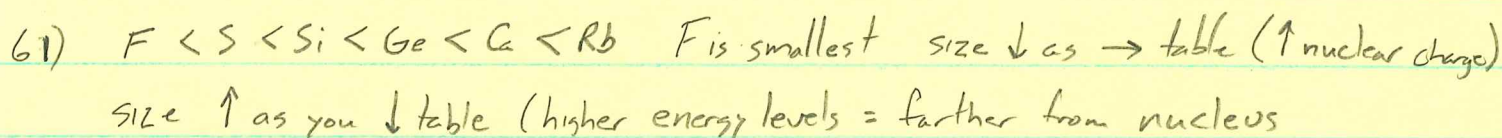 61) F < S < Si < Ge < Ca < Rb F is smallest size ↓ as → table (↑ nuclear charge)
size ↑ as you ↓ table (higher energy levels = farther from nucleus